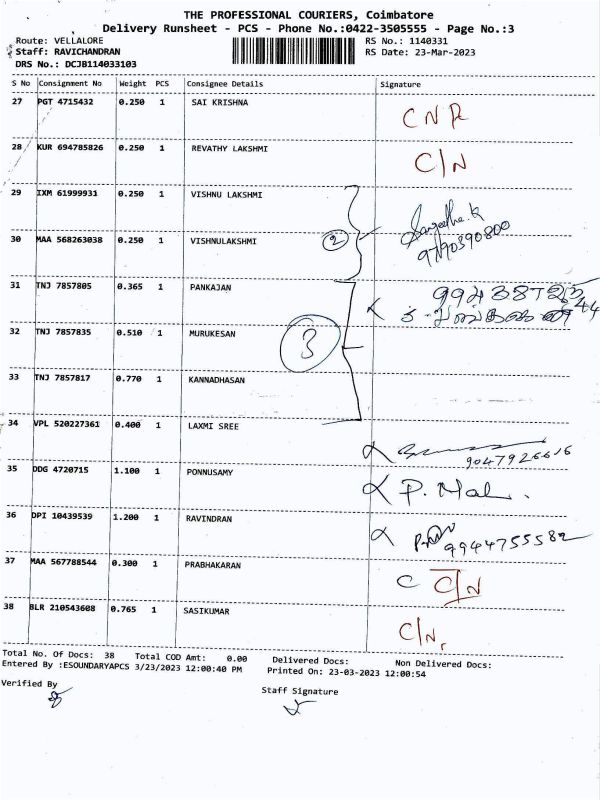 THE PROFESSIONAL COURIERS, Coimbatore
Delivery Runsheet - PCS - Phone No.:0422-3505555 - Page No.:3
Route: VELLALORE
Staff: RAVICHANDRAN
DRS No.: DCJB114033103
RS No.: 1140331
RS Date: 23-Mar-2023
S No Consignment No Weight PCS Consignee Details Signature
27 PGT 4715432 0.250 1 SAI KRISHNA CNR
28 KUR 694785826 0.250 1 REVATHY LAKSHMI C/N
29 IXM 61999931 0.250 1 VISHNU LAKSHMI
30 MAA 568263038 0.250 1 VISHNULAKSHMI 2 Sangeetha.K
9790390800
31 TNJ 7857805 0.365 1 PANKAJAN
32 TNJ 7857835 0.510 1 MURUKESAN 3
33 TNJ 7857817 0.770 1 KANNADHASAN
34 VPL 520227361 0.400 1 LAXMI SREE
9047926616
35 DDG 4720715 1.100 1 PONNUSAMY P. Mal.
36 DPI 10439539 1.200 1 RAVINDRAN 9944755582
37 MAA 567788544 0.300 1 PRABHAKARAN C C/N
38 BLR 210543608 0.765 1 SASIKUMAR C/N,
Total No. Of Docs: 38 Total COD Amt: 0.00 Delivered Docs: Non Delivered Docs:
Entered By :ESOUNDARYAPCS 3/23/2023 12:00:40 PM Printed On: 23-03-2023 12:00:54
Verified By
Staff Signature